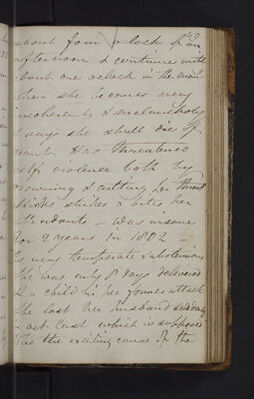 about four o'clock P.M.
afternoon & continues until
about one oclock in the
when she becomes very
incoherent & melancholy
& says she shall die of
want. Has threatened
self violence both by
drowning & cutting her throat
kicks strikes & bites her
attendants - was insane
for 2 years in 1802
is very temperate & abstemious
she was only 8 days delivered
of a child in her former attack
She lost her husband suddenly
last which is supposed
the exciting cause of the